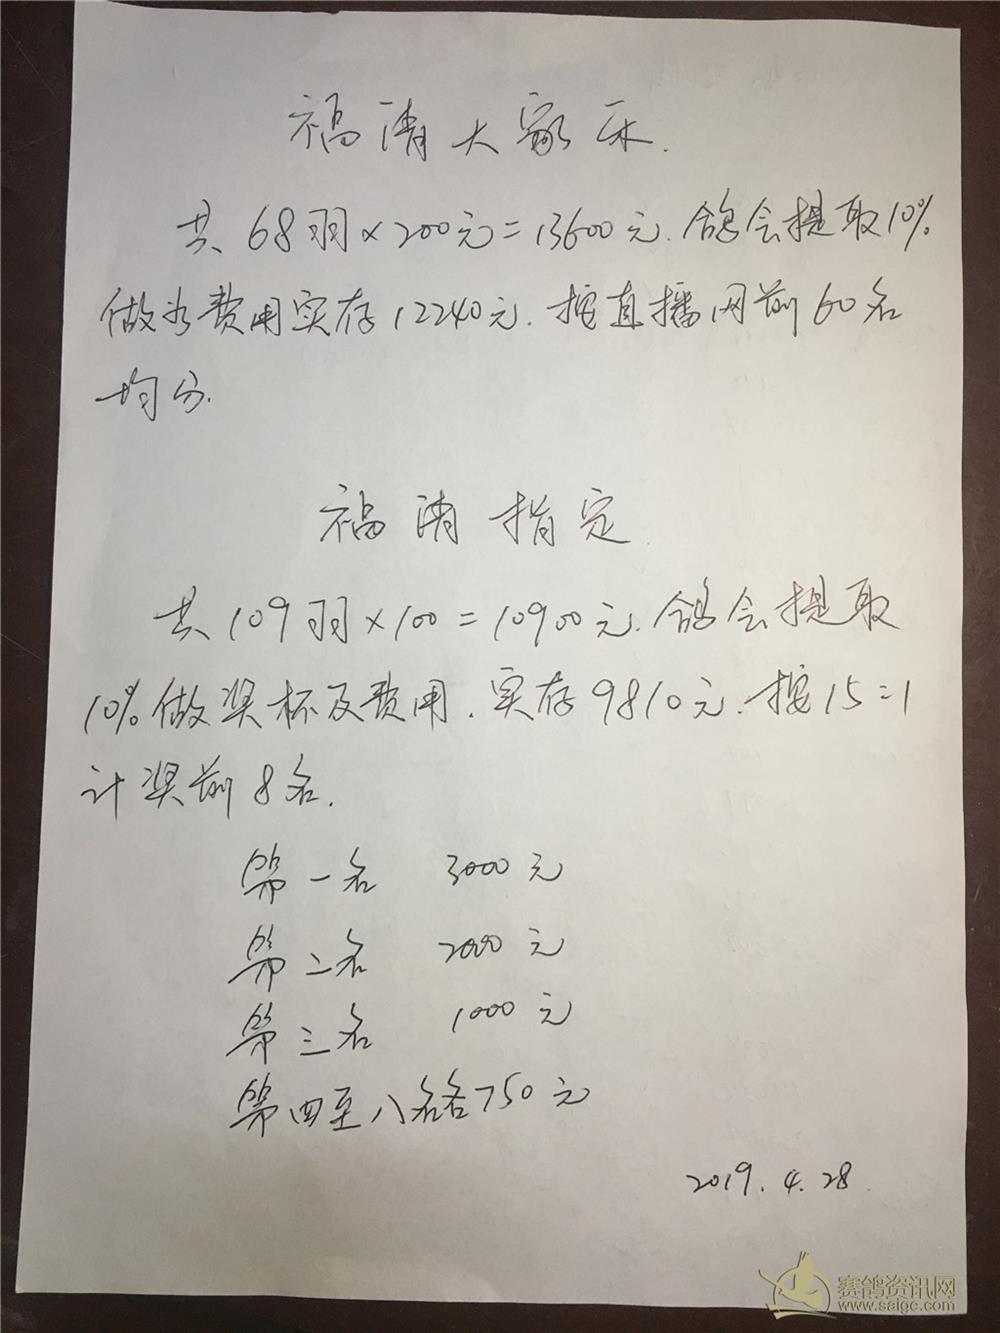 福清大家乐.
共68羽×200元=13600元.鸽会提取10%
做为费用实存12240元.按直播网前60名
均分.
福清指定
共109羽×100=10900元.鸽会提取
10%做奖杯及费用.实存9810元.按15=1
计奖前8名.
第一名 3000元
第二名 2000元
第三名 1000元
第四至八名各750元
2019.4.28
赛鸽资讯网
www.saige.com